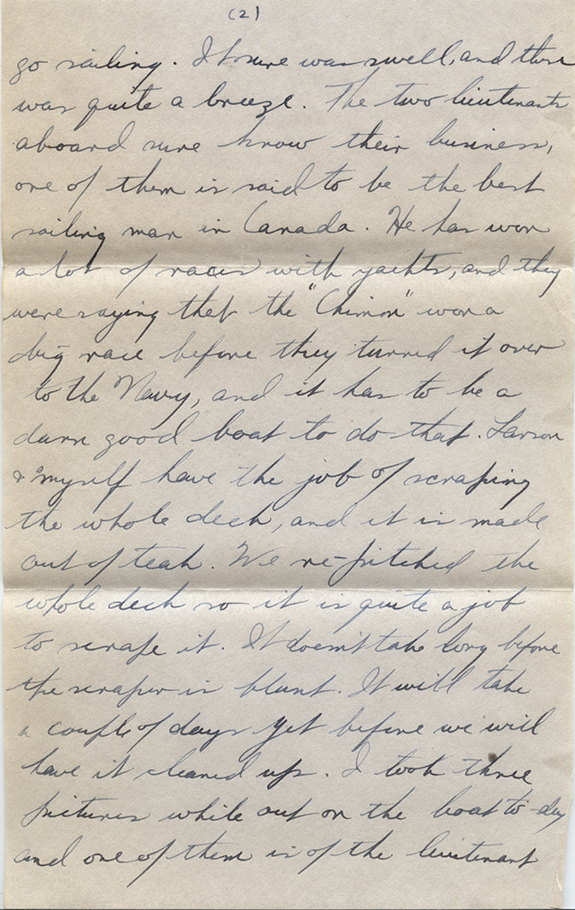 (2)
go sailing. It sure was swell, and there
was quite a breeze. The two lieutenants
aboard sure know their business,
one of them is said to be the best
sailing man in Canada. He has won
a lot of races with yachts, and they
were saying that the " " won a
big race before they turned it over
to the Navy, and it has to be a
darn good boat to do that. Larson
& myself have the job of scraping
the whole deck, and it is made
out of teak. We re-pitched the
whole deck so it is quite a job
to scrape it. It doesn't take long before
the scraper is blunt. It will take
a couple of days yet before we will
have it cleaned up. I took three
pictures while out on the boat to-day
and one of them is of the lieutenant